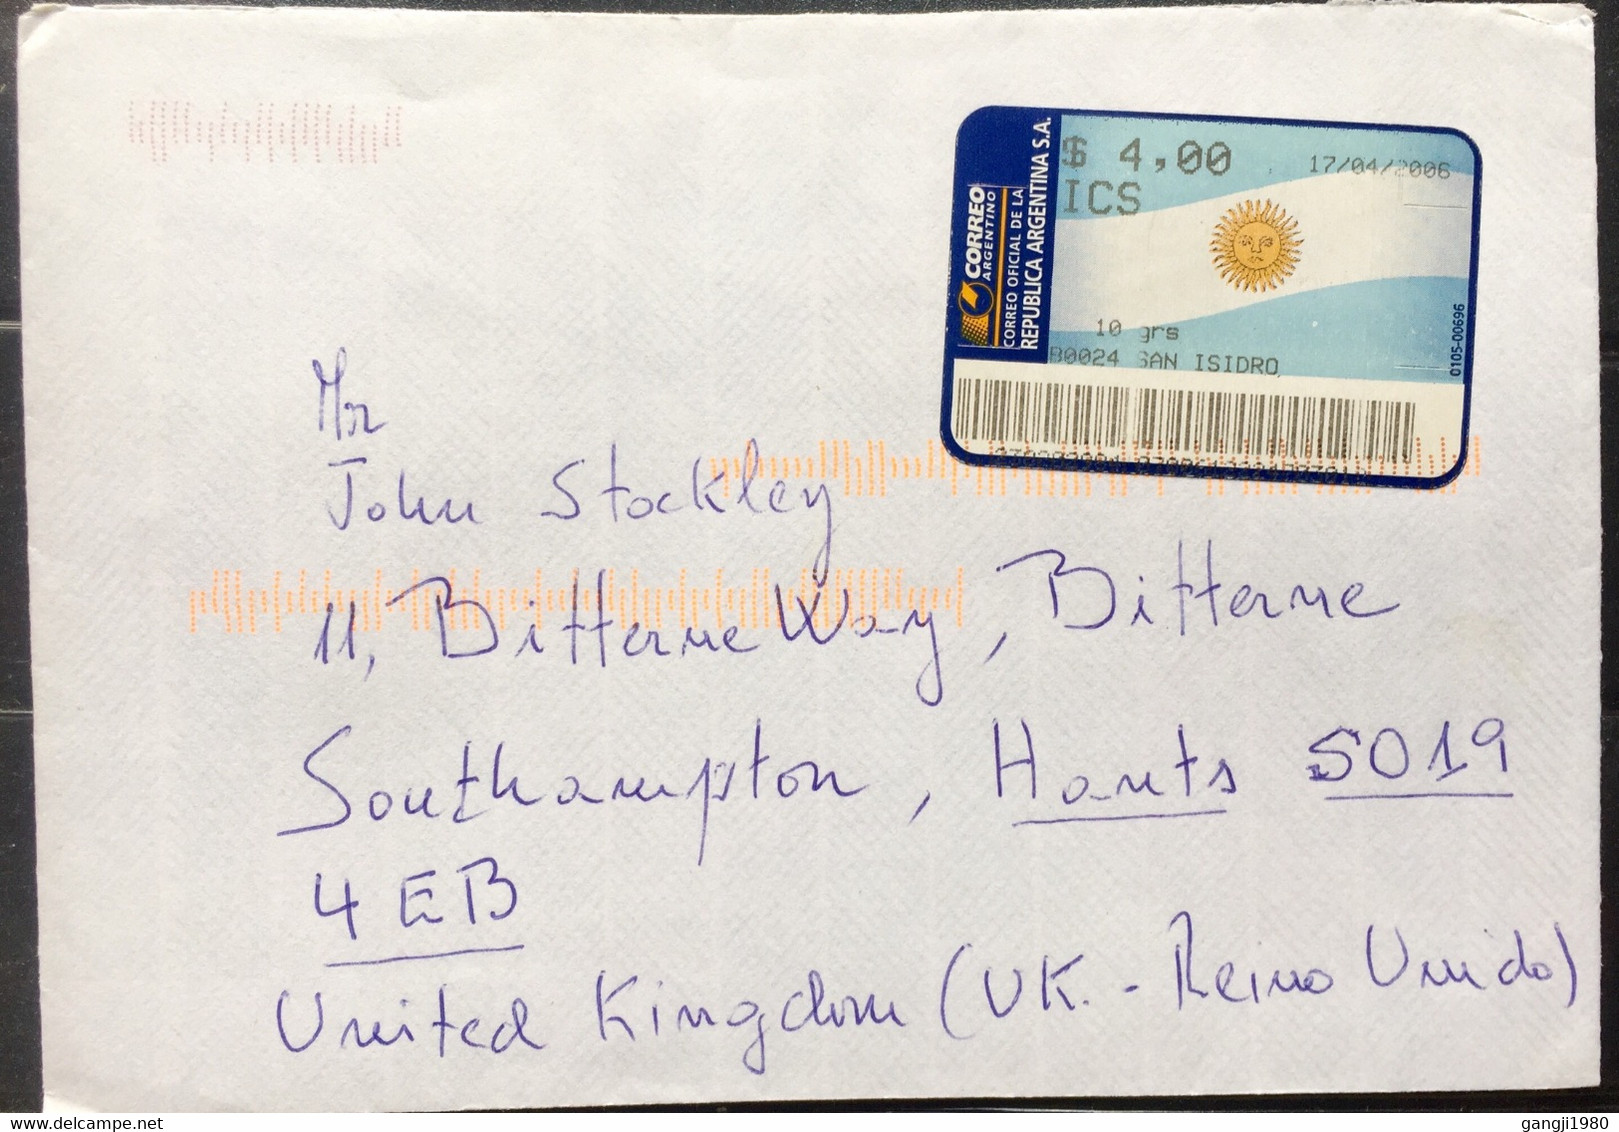 CORREO
ARGENTINO
CORREO OFICIAL DE LA
REPUBLICA ARGENTINA S.A.
$ 4,00
17/04/2006
ICS
10 grs
B0024 SAN ISIDRO
0105-00696
Mr
John Stockley
11, Bitterne Way, Bitterne
Southampton, Hants SO19
4EB
United Kingdom (UK. - Reino Unido)
delcampe.net
gangji1980